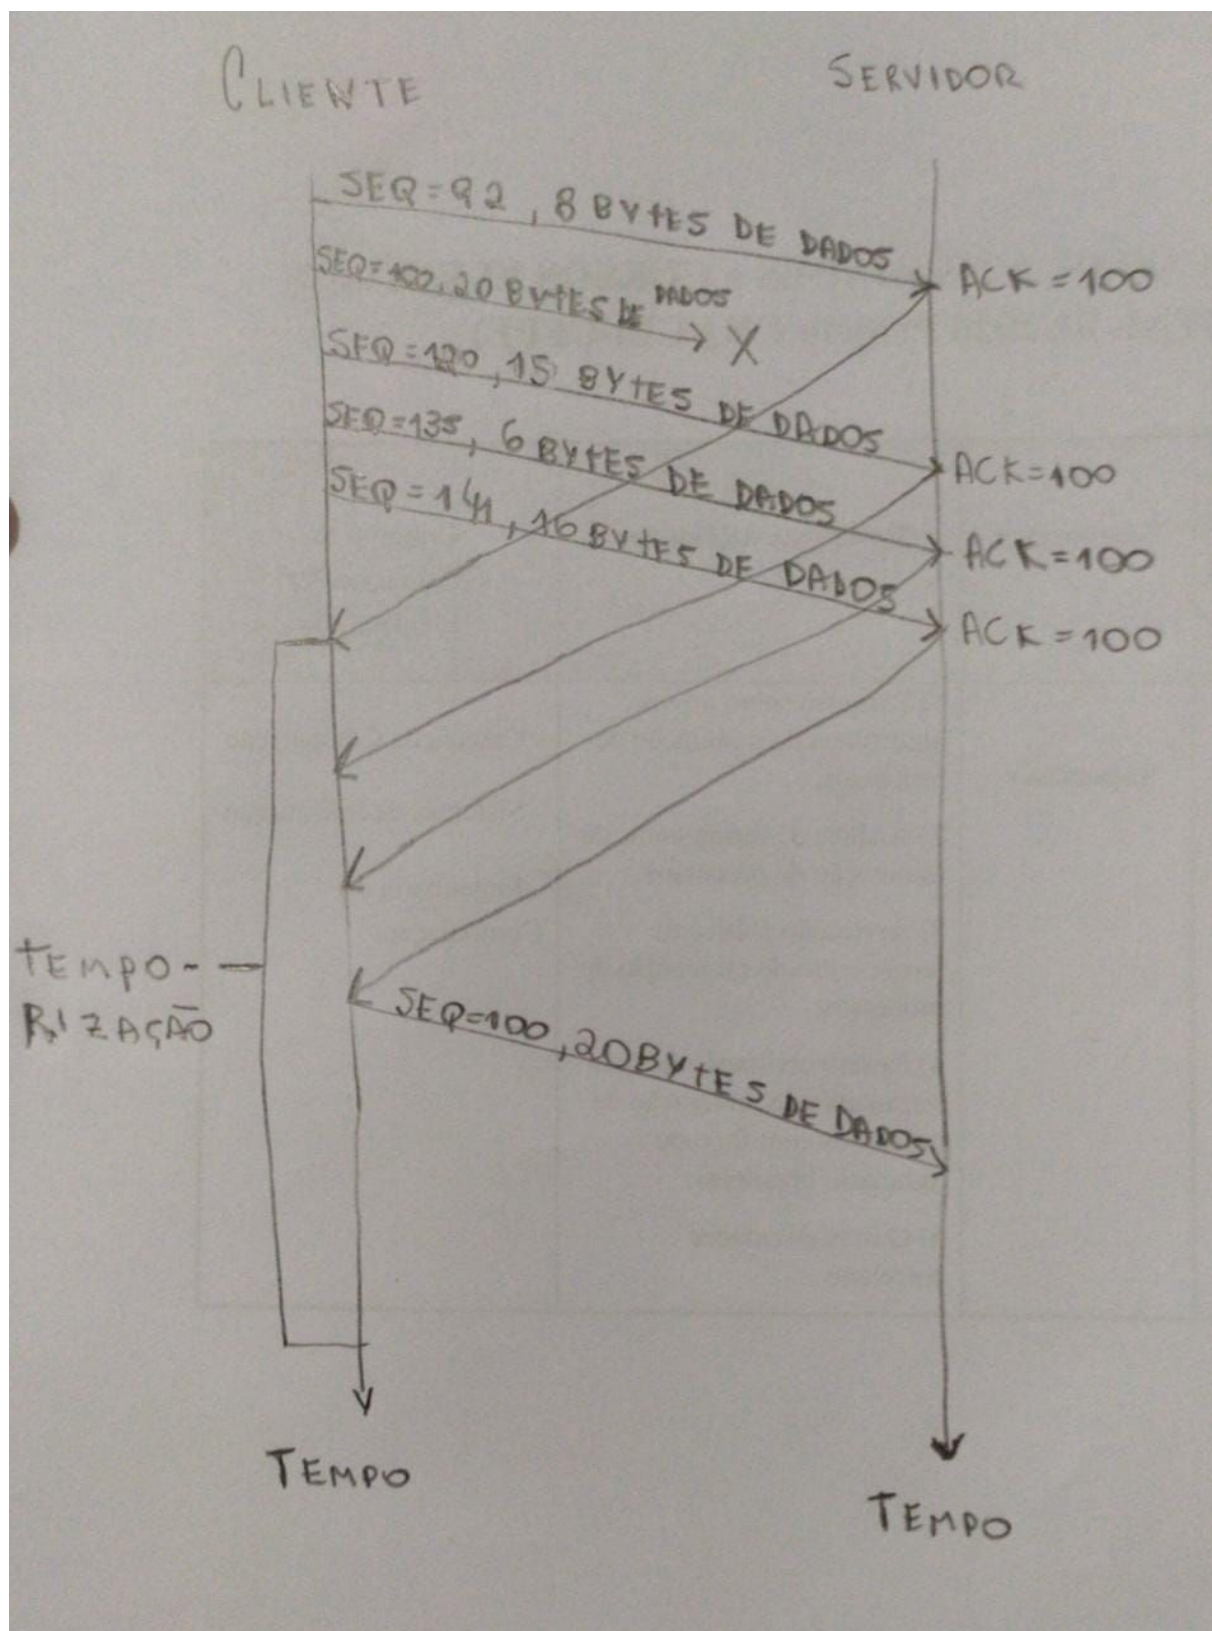 CLIENTE
SERVIDOR
SEQ=92, 8 BYTES DE DADOS
ACK=100
SEQ=100, 20 BYTES DE DADOS
X
SEQ=120, 15 BYTES DE DADOS
ACK=100
SEQ=135, 6 BYTES DE DADOS
ACK=100
SEQ=141, 16 BYTES DE DADOS
ACK=100
TEMPO-
RIZAÇÃO
SEQ=100, 20 BYTES DE DADOS
TEMPO
TEMPO